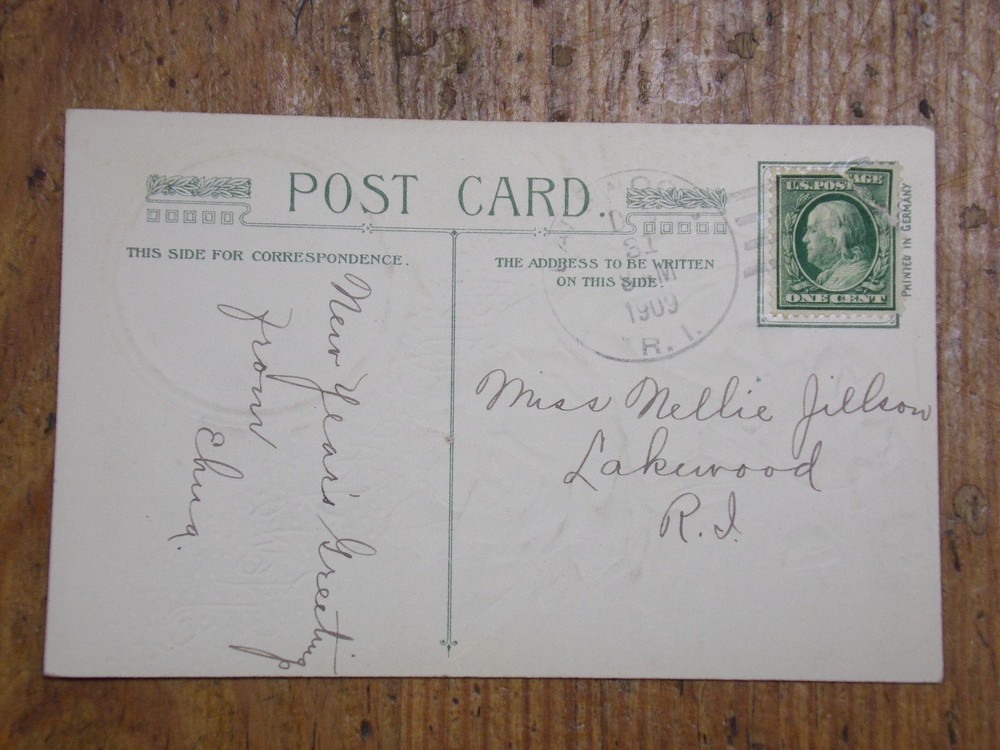 POST CARD.
THIS SIDE FOR CORRESPONDENCE.
THE ADDRESS TO BE WRITTEN
ON THIS SIDE.
U.S. POSTAGE
ONE CENT
PRINTED IN GERMANY
31
1909
R. I.
New Year's Greeting
from
Miss Nellie Jillson
Lakewood
R.I.